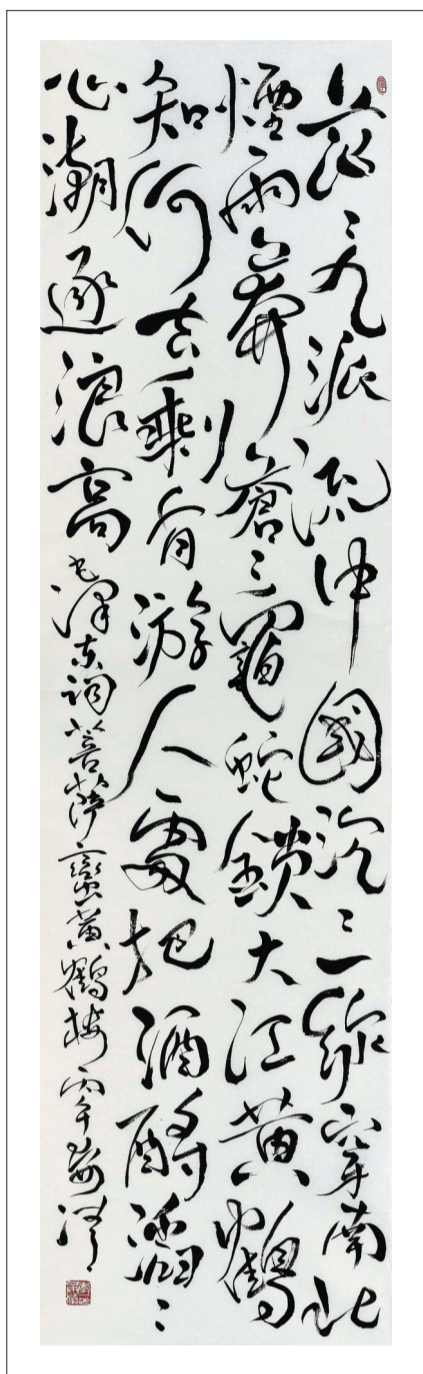 茫〻九派流中國沉〻一線穿南北
煙雨莽蒼〻龜蛇鎖大江黃鶴
知何去剩有游人處把酒酹滔〻
心潮逐浪高 毛澤東詞菩薩蠻黃鶴樓 丙午